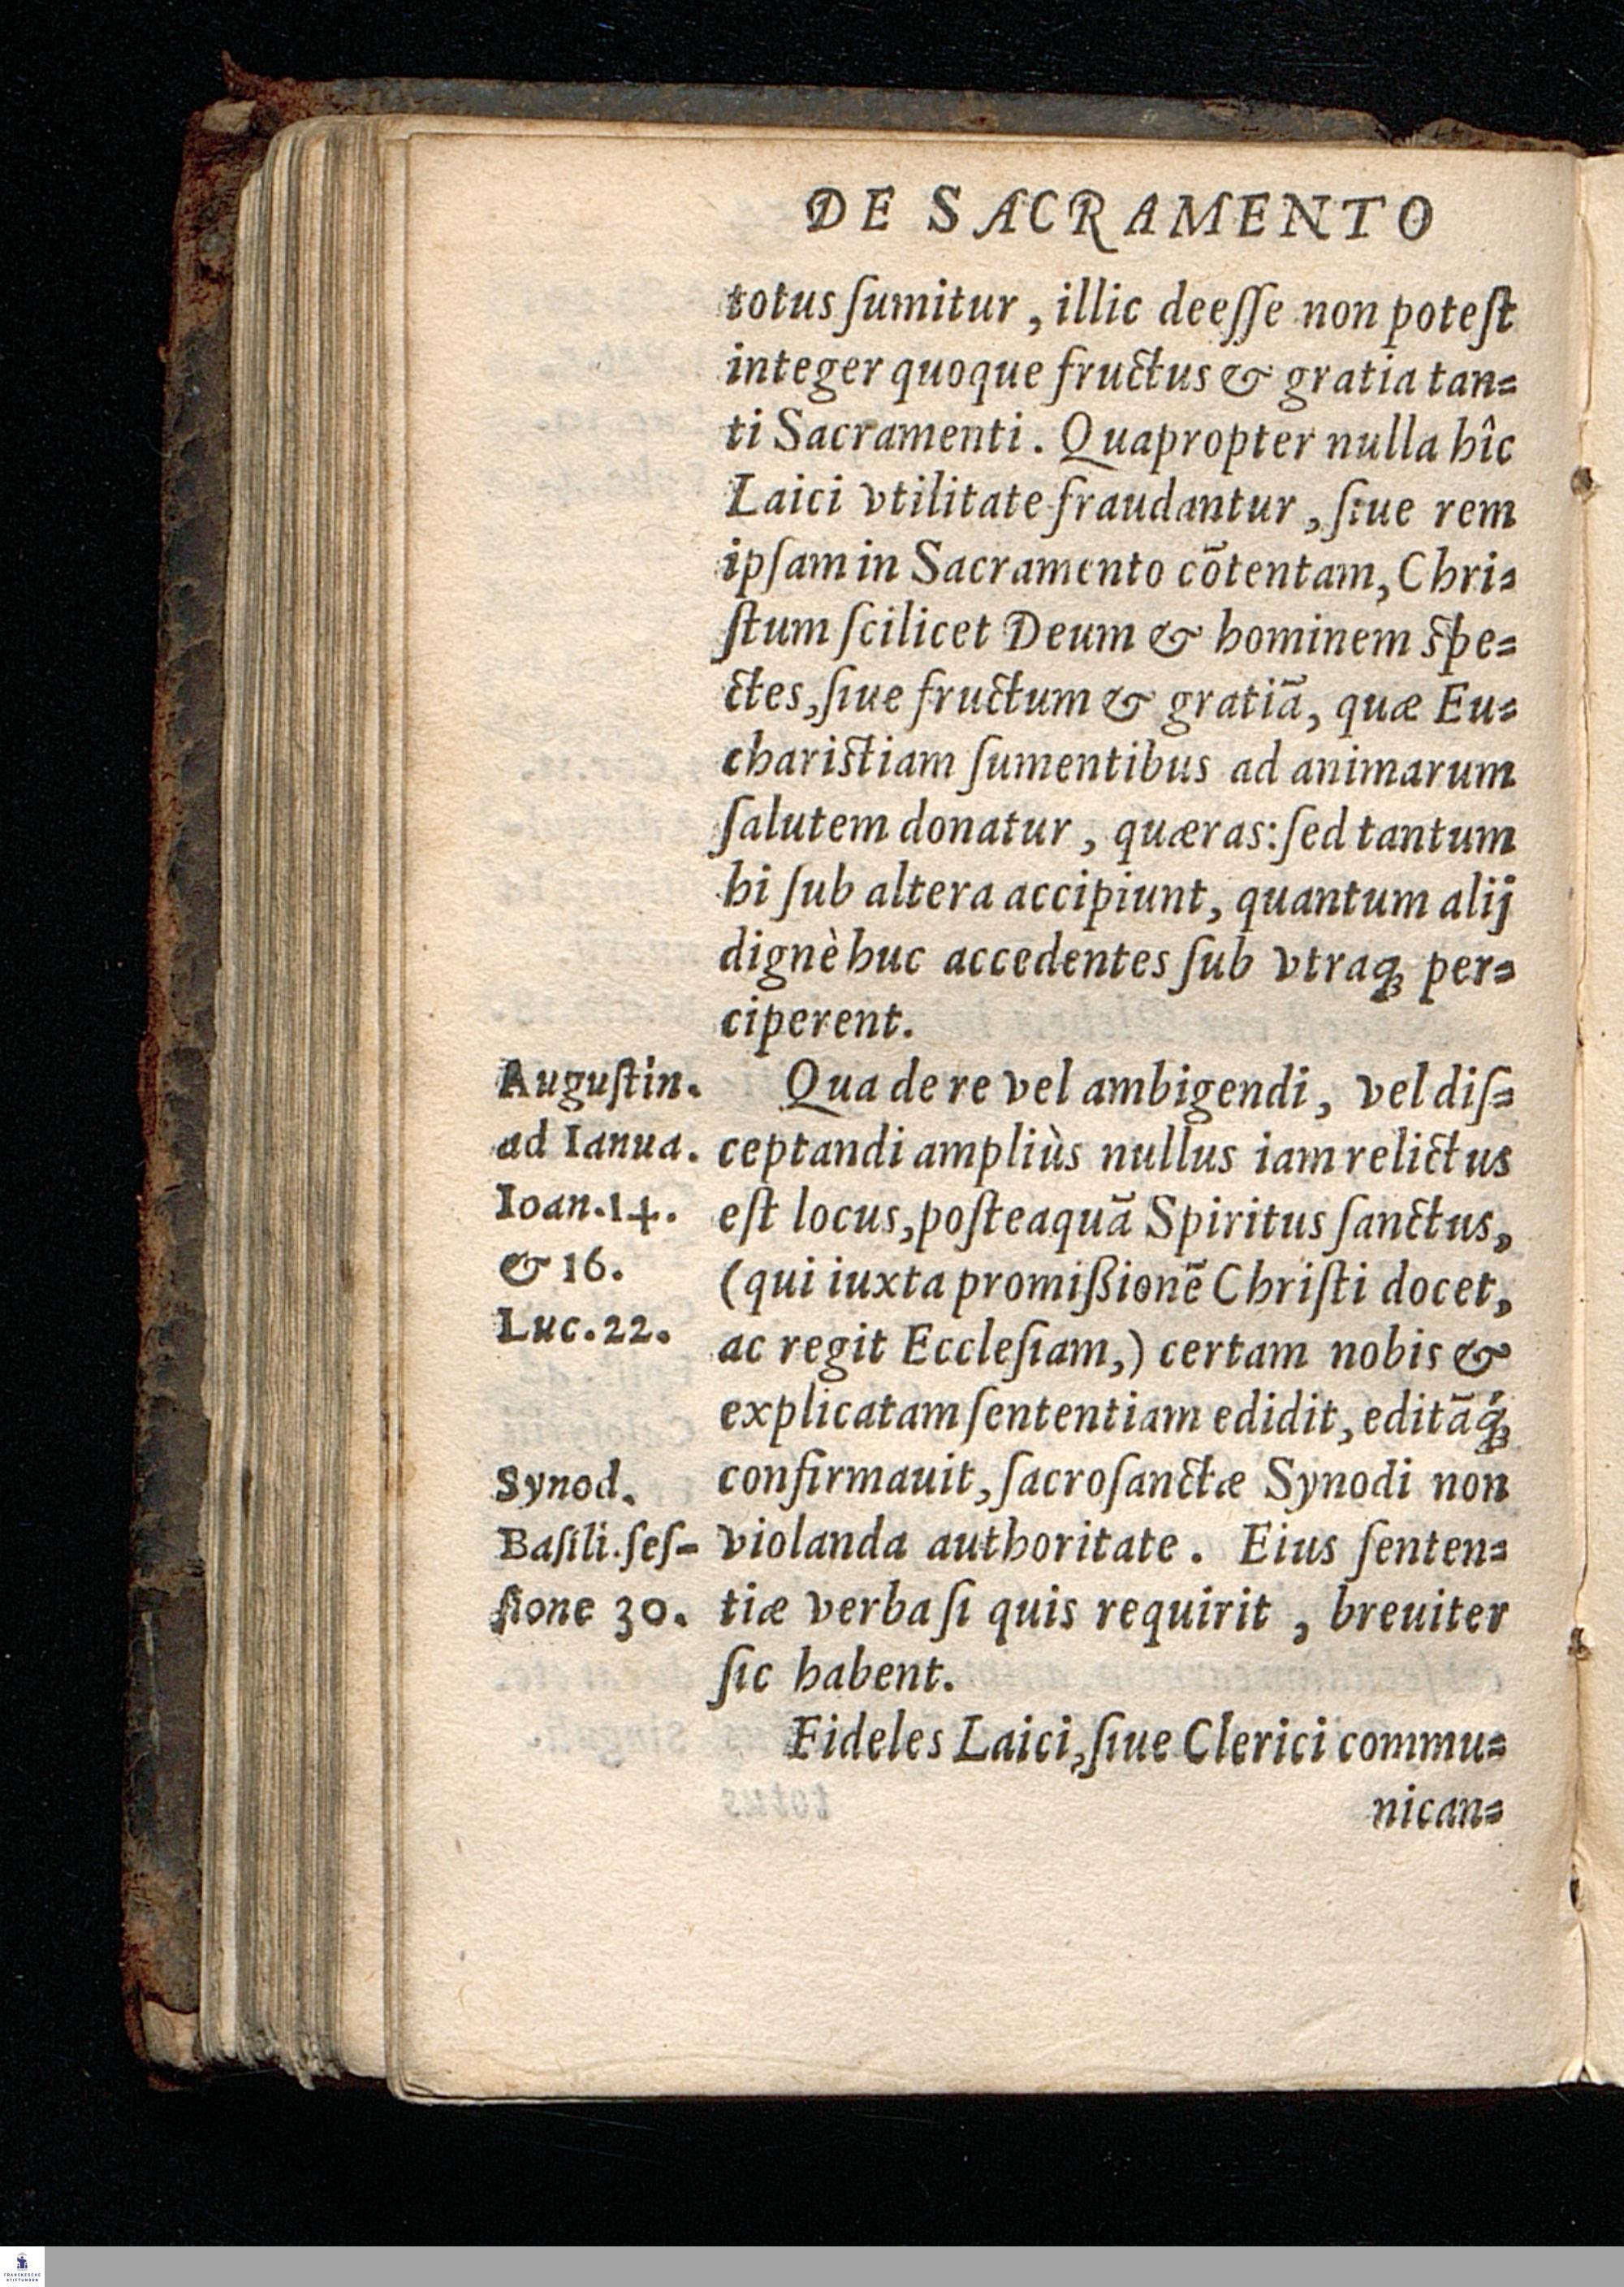 DE SACRAMENTO
totus ſumitur, illic deeſſe non poteſt
integer quoque fructus & gratia tan=
ti Sacramenti. Quapropter nulla hîc
Laici vtilitate fraudantur, ſiue rem
ipſam in Sacramento cõtentam, Chri=
ſtum ſcilicet Deum & hominem ſpe=
ctes, ſiue fructum & gratiã, quæ Eu=
chariſtiam ſumentibus ad animarum
ſalutem donatur, quæras: ſed tantum
hi ſub altera accipiunt, quantum alij
dignè huc accedentes ſub vtraqꝫ per=
ciperent.
Auguſtin.
ad Ianua.
Ioan.14.
& 16.
Luc.22.
Qua de re vel ambigendi, vel diſ=
ceptandi ampliùs nullus iam relictus
eſt locus, poſteaquã Spiritus ſanctus,
(qui iuxta promißionẽ Chriſti docet,
ac regit Eccleſiam,) certam nobis &
explicatam ſententiam edidit, editãq́ꝫ
confirmauit, ſacroſanctæ Synodi non
violanda authoritate. Eius ſenten=
tiæ verba ſi quis requirit, breuiter
ſic habent.
Synod.
Baſili.ſeſ-
ſione 30.
Fideles Laici, ſiue Clerici commu=
nican=
FRANCKESCHE
STIFTUNGEN